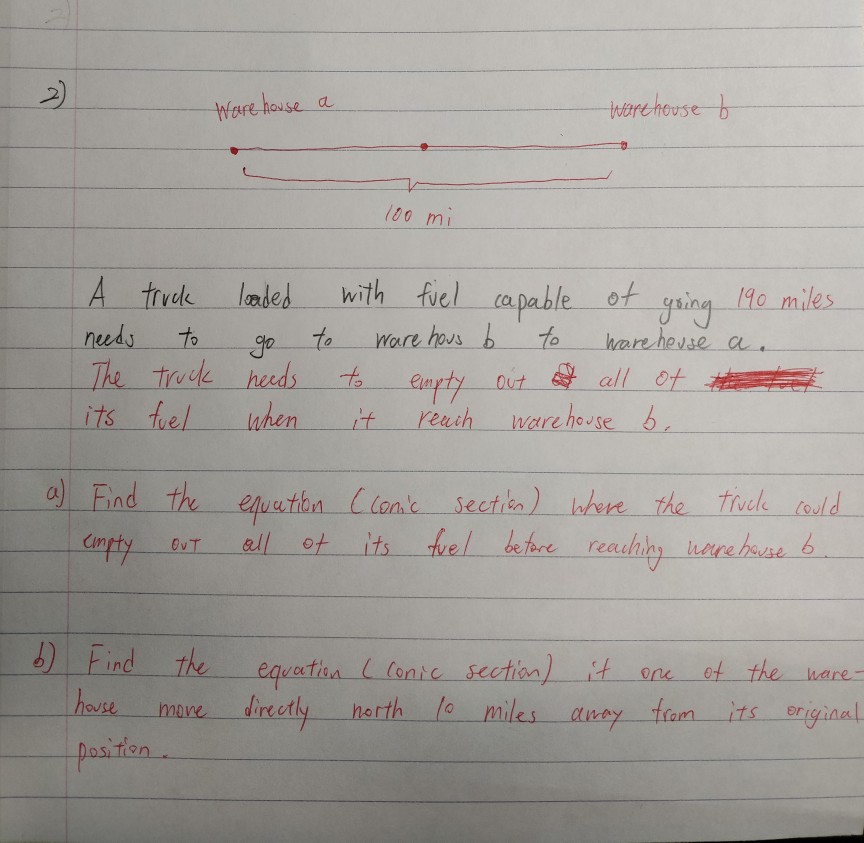 2)
Warehouse a
warehouse b
100 mi
A truck loaded with fuel capable of going 190 miles
needs to go to warehous b to warehouse a.
The truck needs to empty out all of
its fuel when it reach warehouse b.
a) Find the equation (conic section) where the truck could
empty out all of its fuel before reaching warehouse b.
b) Find the equation (conic section) if one of the ware-
house move directly north 10 miles away from its original
position.